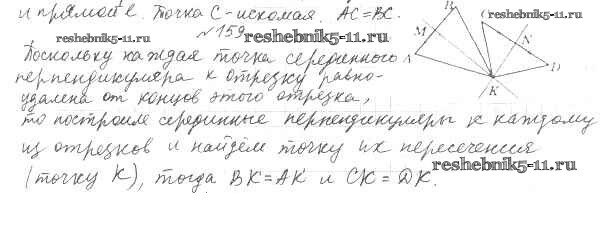 и прямой l. Точка С-искомая. AC=BC.
№159
reshebnik5-11.ru
reshebnik5-11.ru
Поскольку каждая точка серединного
перпендикуляра к отрезку равно-
удалена от концов этого отрезка,
то построим серединные перпендикуляры к каждому
из отрезков и найдём точку их пересечения
(точку K), тогда BK=AK и CK=DK.
reshebnik5-11.ru
B
C
M
N
A
D
K